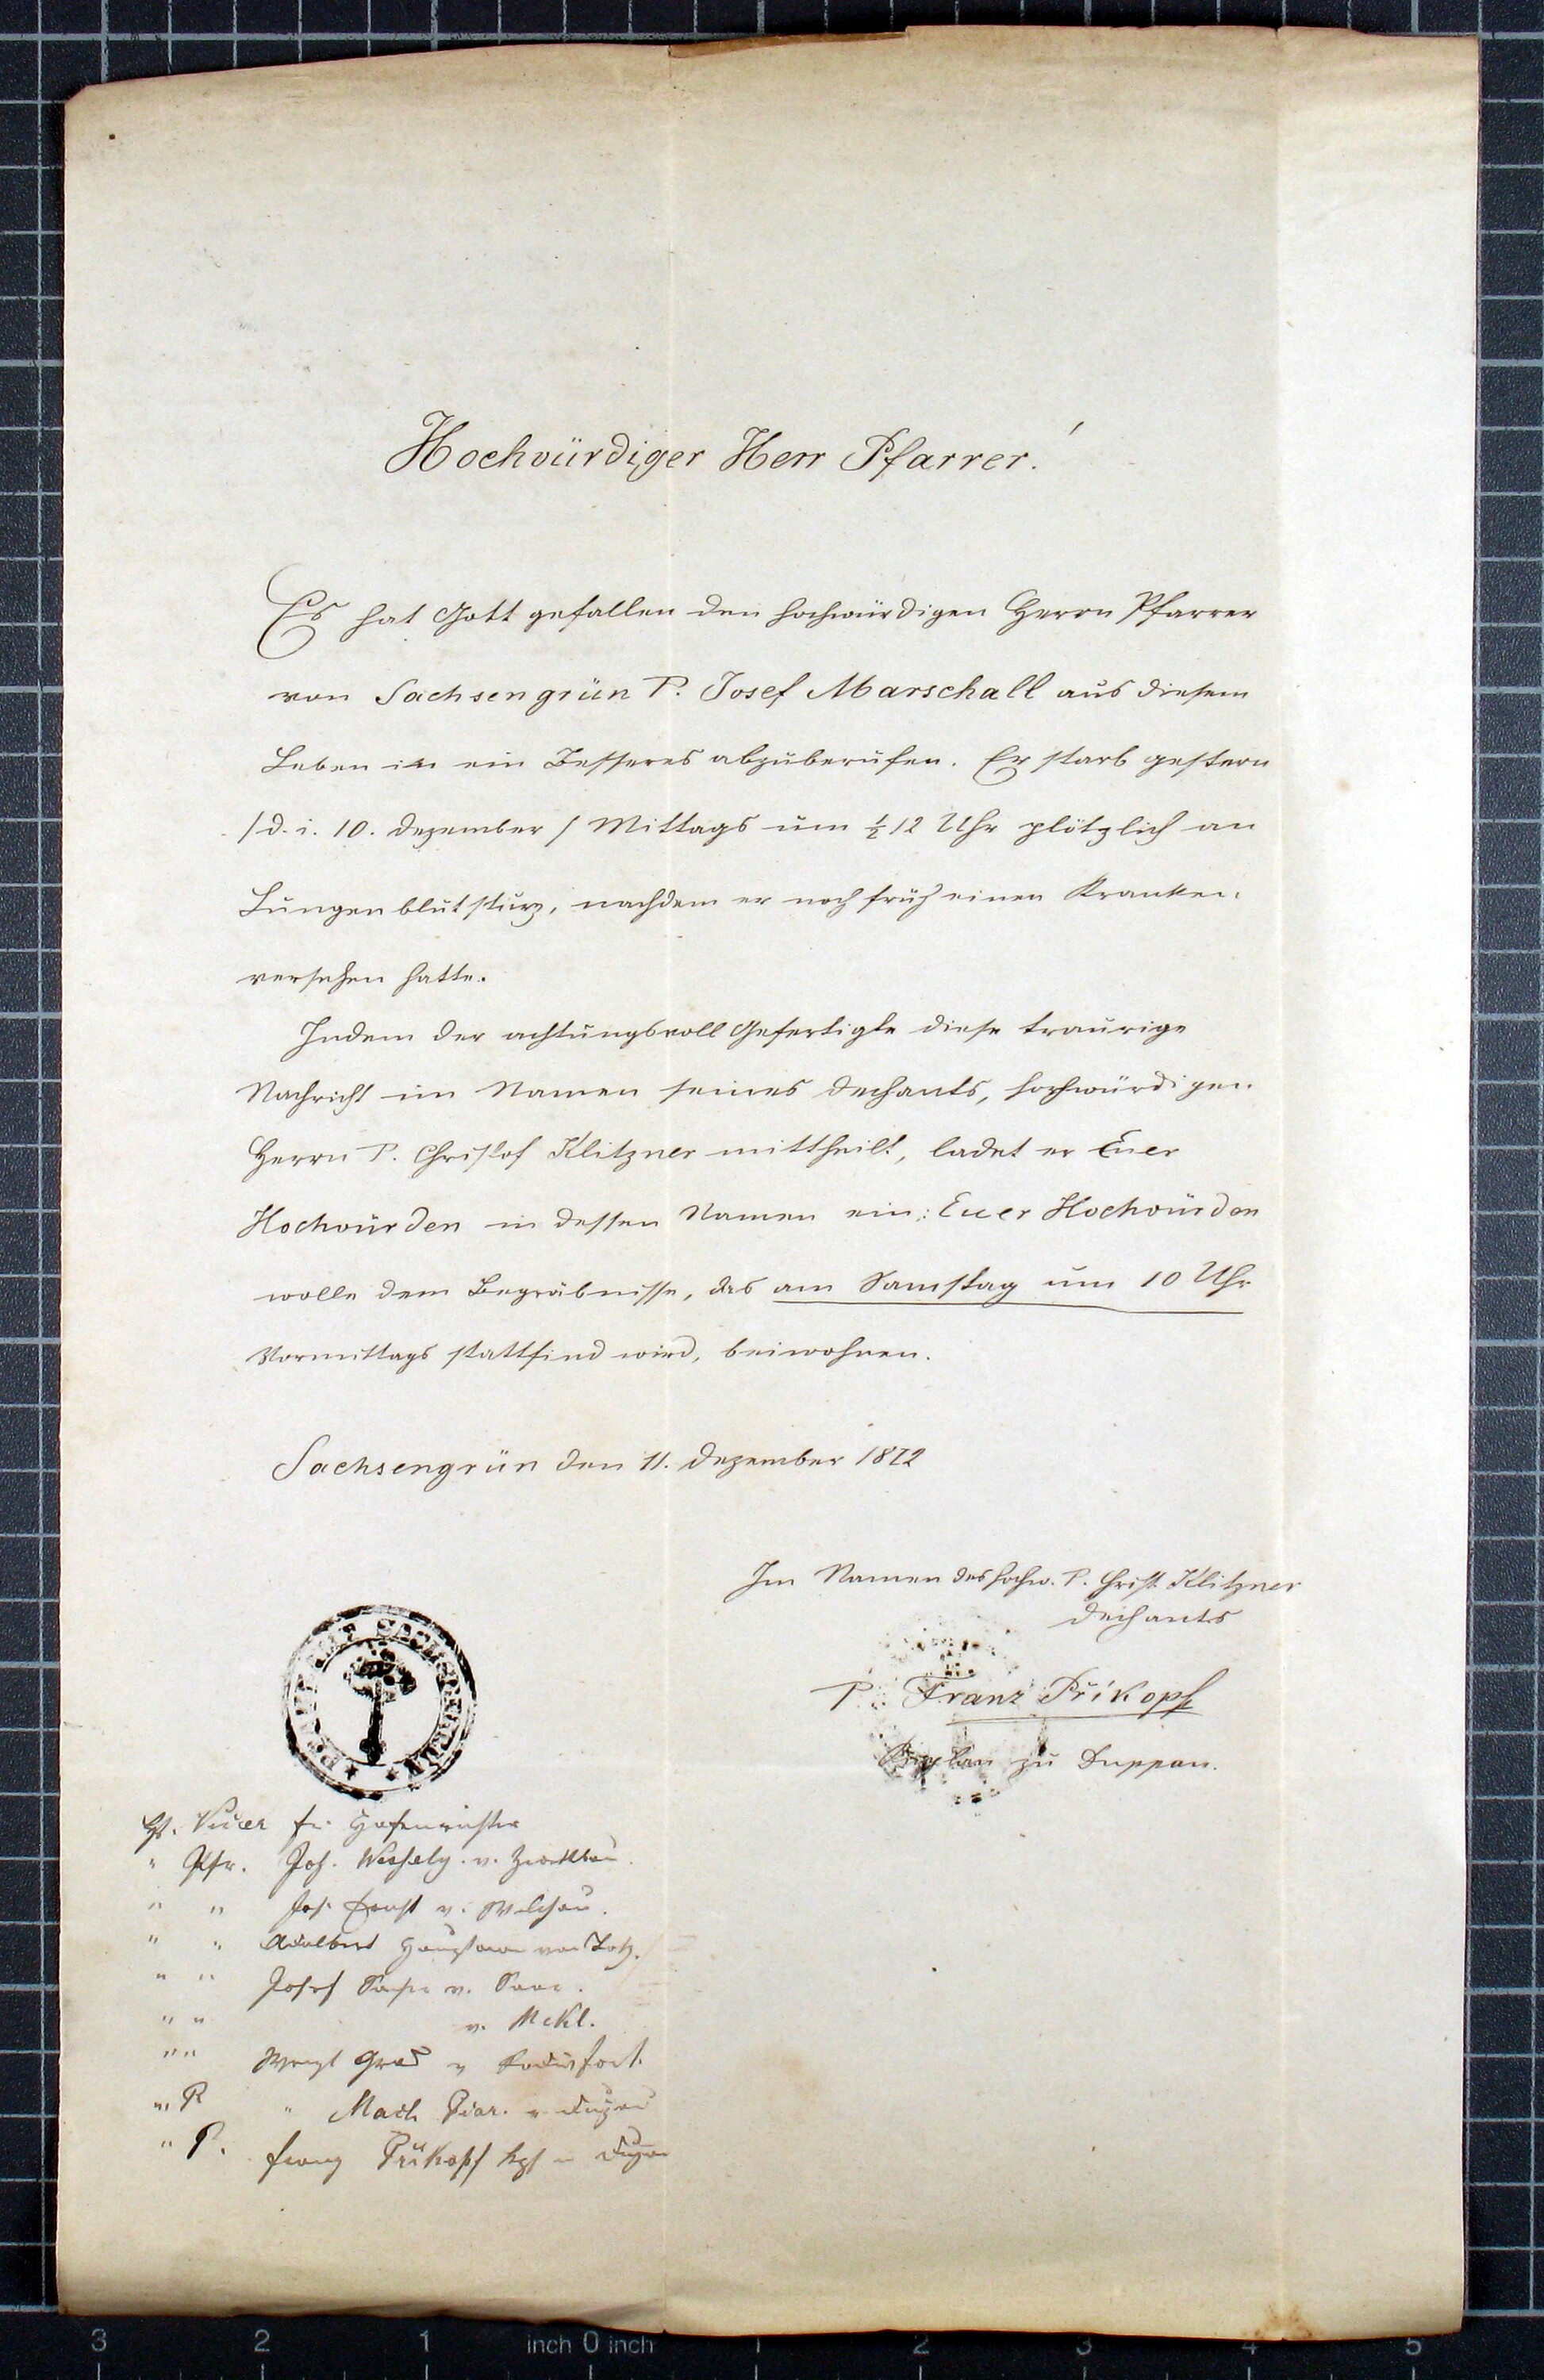 Hochwürdiger Herr Pfarrer!
Es hat Gott gefallen den hochwürdigen Herrn Pfarrer
von Sachsengrün P. Josef Marschall aus diesem
Leben in ein Besseres abzuberufen. Er starb gestern
/d. i. 10. Dezember/ Mittags um ½12 Uhr plötzlich an
Lungenblutsturz, nachdem er noch früh einen Kranken
versehen hatte.
Indem der achtungsvoll Gefertigte diese traurige
Nachricht im Namen seines Dechants, hochwürdigen
Herrn P. Christof Klitzner mittheilt, ladet er Euer
Hochwürden in dessen Namen ein: Euer Hochwürden
wolle dem Begräbnisse, das am Samstag um 10 Uhr
Vormittags stattfind wird, beiwohnen.
Sachsengrün den 11. Dezember 1872
Im Namen des hochw. P. Christ. Klitzner
Dechants
P. Franz Přikopf
Kaplan zu Duppau.
H. Vicar
" Pfr. Joh. Wessely v.
" " Jos. Ernst v. Welchau.
" " Adalbert von
" " Josef v.
" " v. Mekl.
" " Wenzl v. Rodisfort.
" P. " Mach v. Duppau
" P. Franz Přikopf v. Duppau